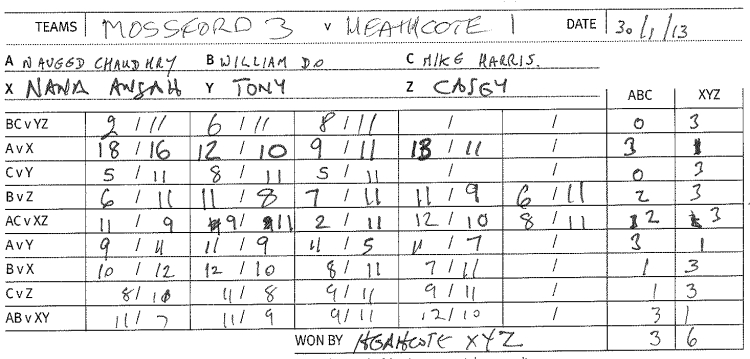 TEAMS MOSSFORD 3 v HEATHCOTE 1 DATE 30/1/13
A NAVEED CHAUDHRY B WILLIAM DO C MIKE HARRIS.
X NANA ANSAH Y TONY Z CASEY
ABC XYZ
BCvYZ 2 / 11 6 / 11 8 / 11 / / 0 3
AvX 18 / 16 12 / 10 9 / 11 13 / 11 / 3 1
CvY 5 / 11 8 / 11 5 / 11 / / 0 3
BvZ 6 / 11 11 / 8 7 / 11 11 / 9 6 / 11 2 3
ACvXZ 11 / 9 9 / 11 2 / 11 12 / 10 8 / 11 2 3
AvY 9 / 11 11 / 9 11 / 5 11 / 7 / 3 1
BvX 10 / 12 12 / 10 8 / 11 7 / 11 / 1 3
CvZ 8 / 11 8 9 / 11 9 / 11 / 1 3
ABvXY 11 / 7 11 / 9 9 / 11 12 / 10 / 3 1
WON BY HEATHCOTE XYZ 3 6